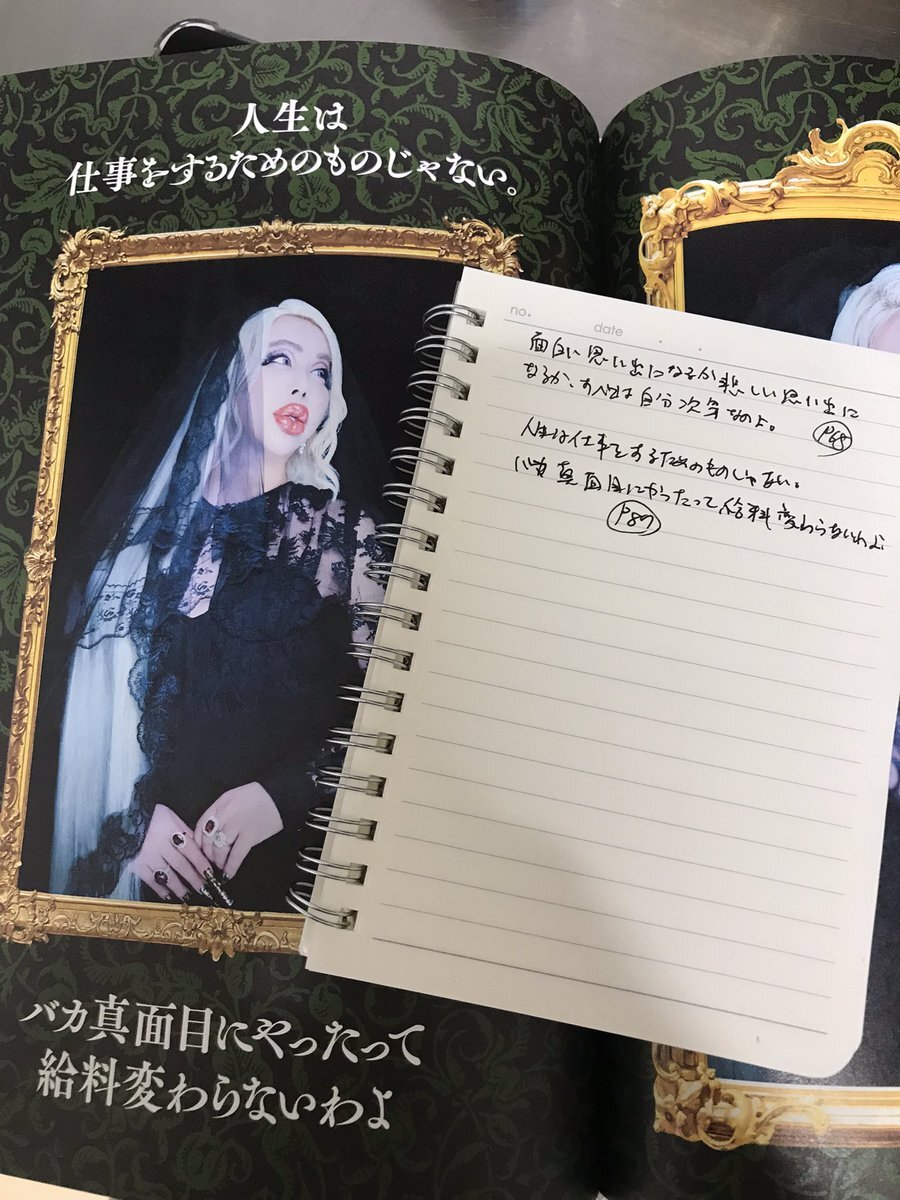 人生は
仕事をするためのものじゃない。
バカ真面目にやったって
給料変わらないわよ
no.
date
面白い思い出になるか悲しい思い出に
なるか、すべては自分次第なのよ。
P68
人生は仕事をするためのものじゃない。
バカ真面目にやったって給料変わらないわよ
P87